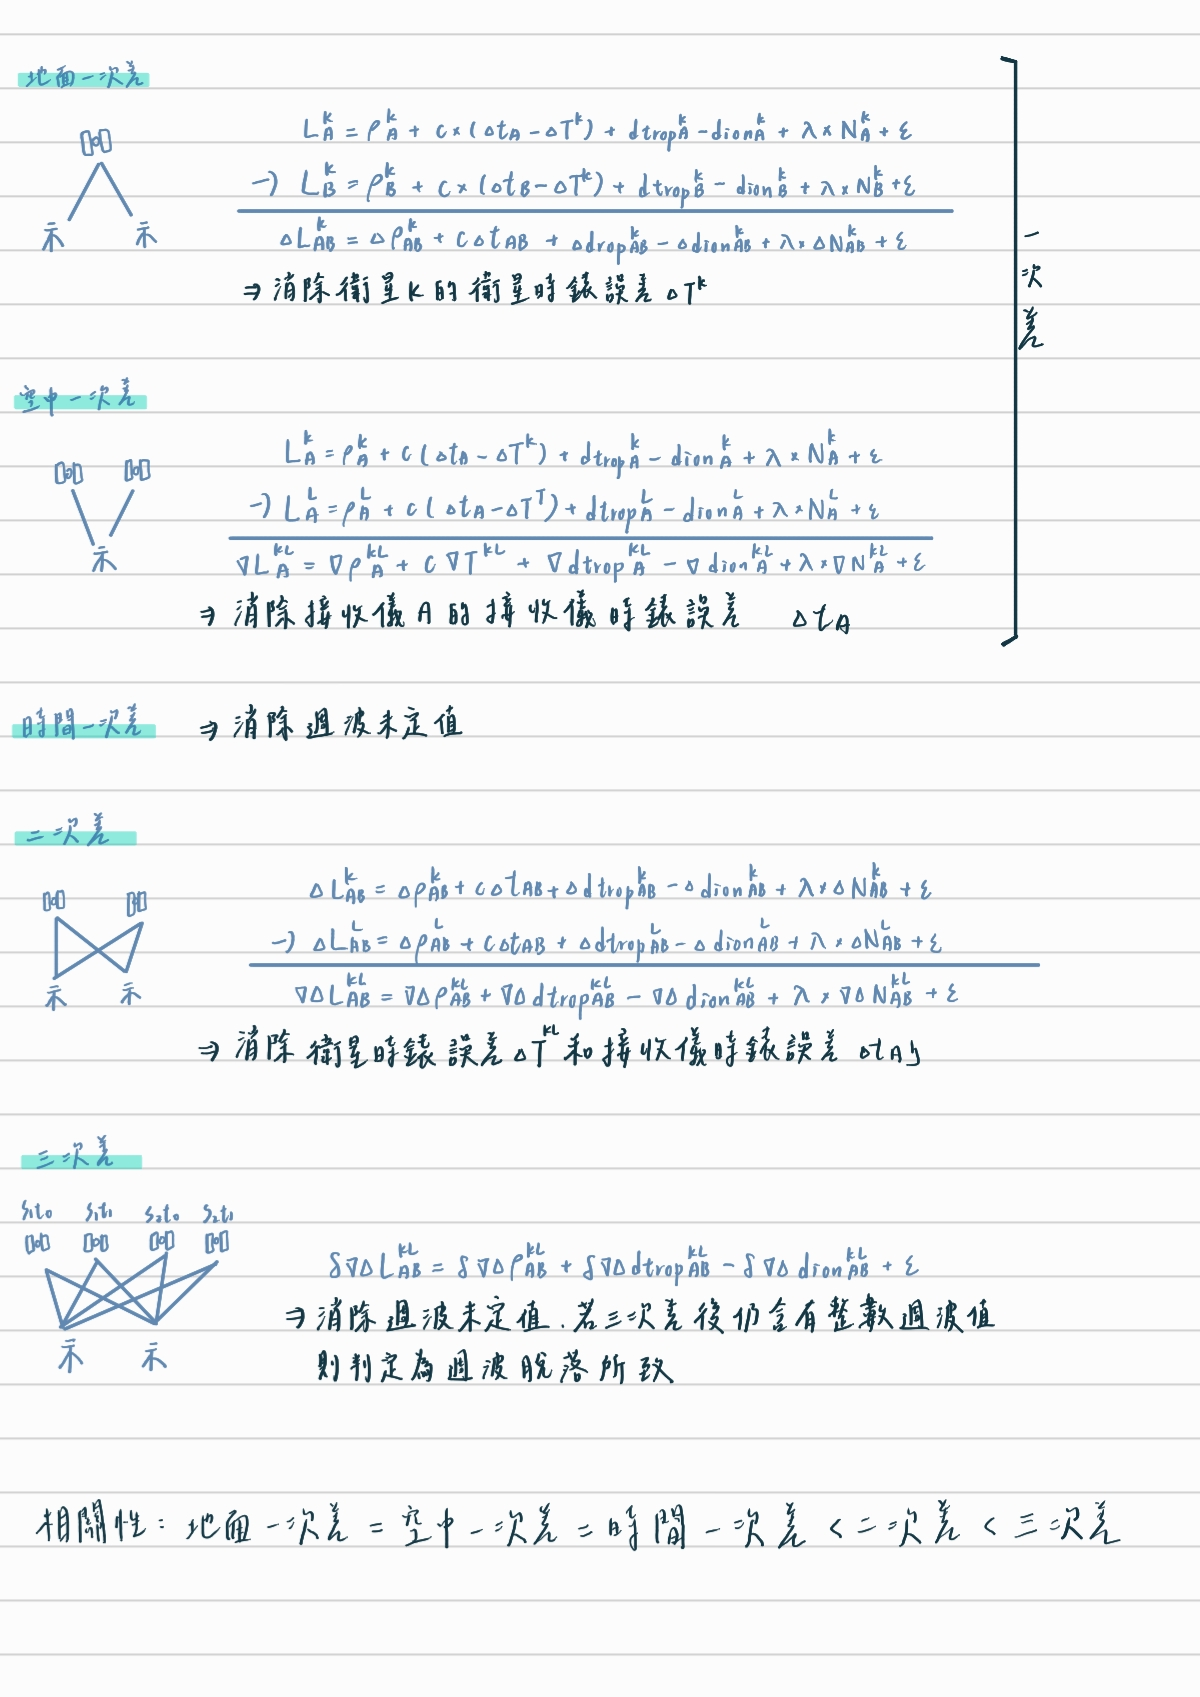 地面一次差
L_A^k = ρ_A^k + c×(△t_A − △T^k) + dtrop_A^k − dion_A^k + λ×N_A^k + ε
−) L_B^k = ρ_B^k + c×(△t_B − △T^k) + dtrop_B^k − dion_B^k + λ×N_B^k + ε
△L_AB^k = △ρ_AB^k + c△t_AB + △drop_AB^k − △dion_AB^k + λ×△N_AB^k + ε
⇒ 消除衛星k的衛星時錶誤差 △T^k
一次差
空中一次差
L_A^k = ρ_A^k + c(△t_A − △T^k) + dtrop_A^k − dion_A^k + λ×N_A^k + ε
−) L_A^L = ρ_A^L + c(△t_A − △T^T) + dtrop_A^L − dion_A^L + λ×N_A^L + ε
∇L_A^kL = ∇ρ_A^kL + c∇T^kL + ∇dtrop_A^kL − ∇dion_A^kL + λ×∇N_A^kL + ε
⇒ 消除接收儀A的接收儀時錶誤差 △t_A
時間一次差 ⇒ 消除週波未定值
二次差
△L_AB^k = △ρ_AB^k + c△t_AB + △dtrop_AB^k − △dion_AB^k + λ×△N_AB^k + ε
−) △L_AB^L = △ρ_AB^L + c△t_AB + △dtrop_AB^L − △dion_AB^L + λ×△N_AB^L + ε
∇△L_AB^kL = ∇△ρ_AB^kL + ∇△dtrop_AB^kL − ∇△dion_AB^kL + λ×∇△N_AB^kL + ε
⇒ 消除衛星時錶誤差△T^kL和接收儀時錶誤差
三次差
S₁t₀ S₁t₁ S₂t₀ S₂t₁
δ∇△L_AB^kL = δ∇△ρ_AB^kL + δ∇△dtrop_AB^kL − δ∇△dion_AB^kL + ε
⇒ 消除週波未定值.若三次差後仍含有整數週波值
則判定為週波脫落所致
相關性: 地面一次差 = 空中一次差 = 時間一次差 < 二次差 < 三次差